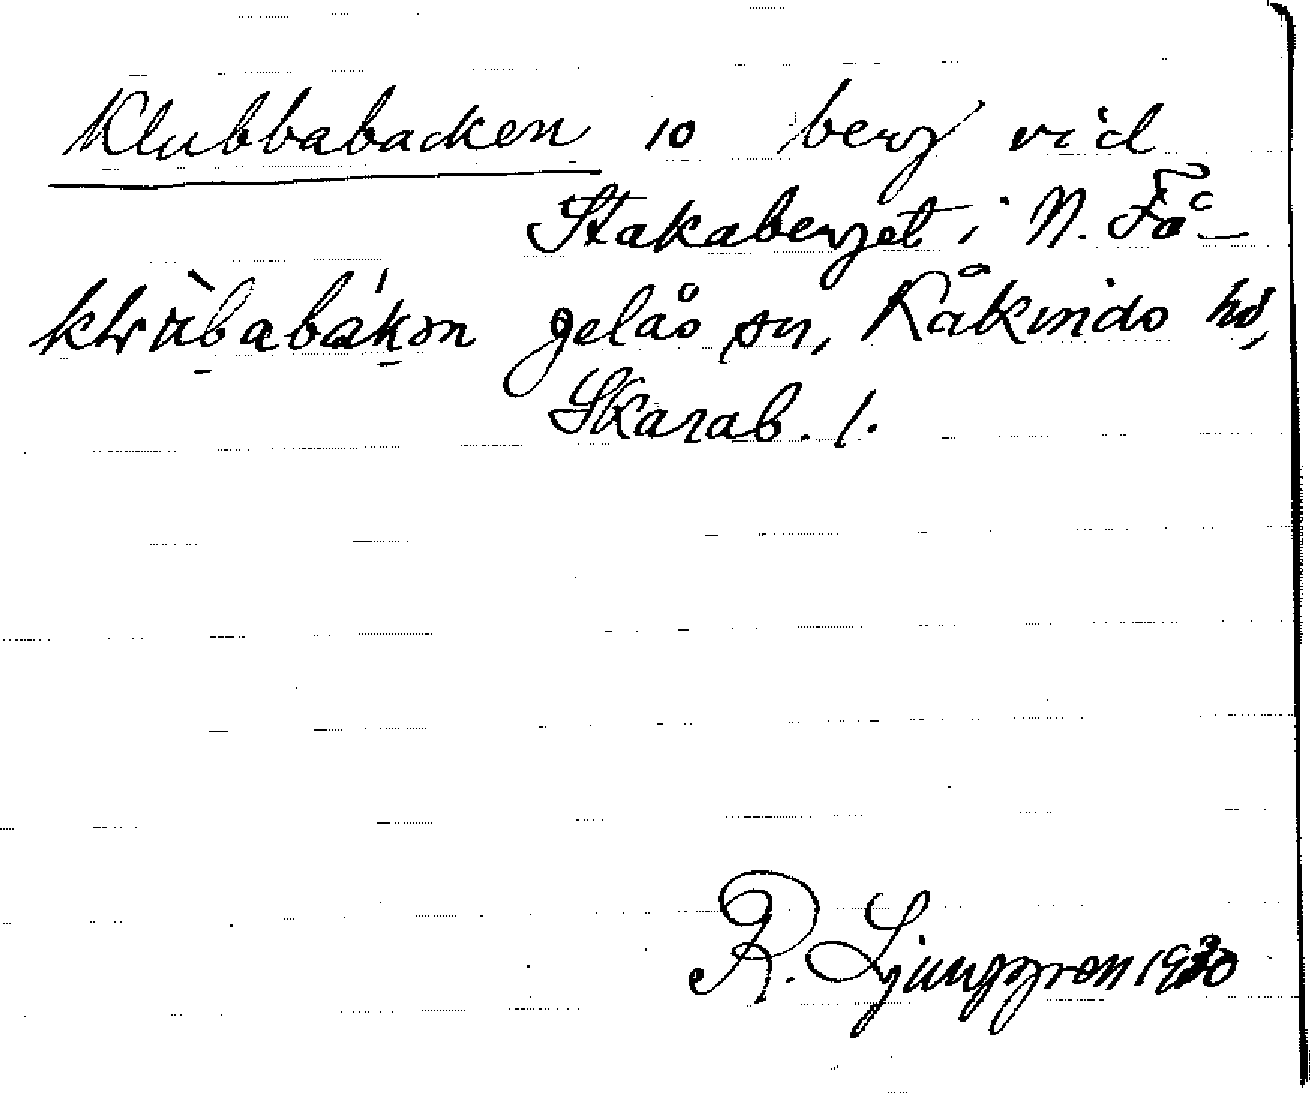 Klubbabacken 10 berg vid
Stakaberget i N. Få-
gelås sn, Kåkinds hd,
Skarab. l.
R. Ljunggren 1930